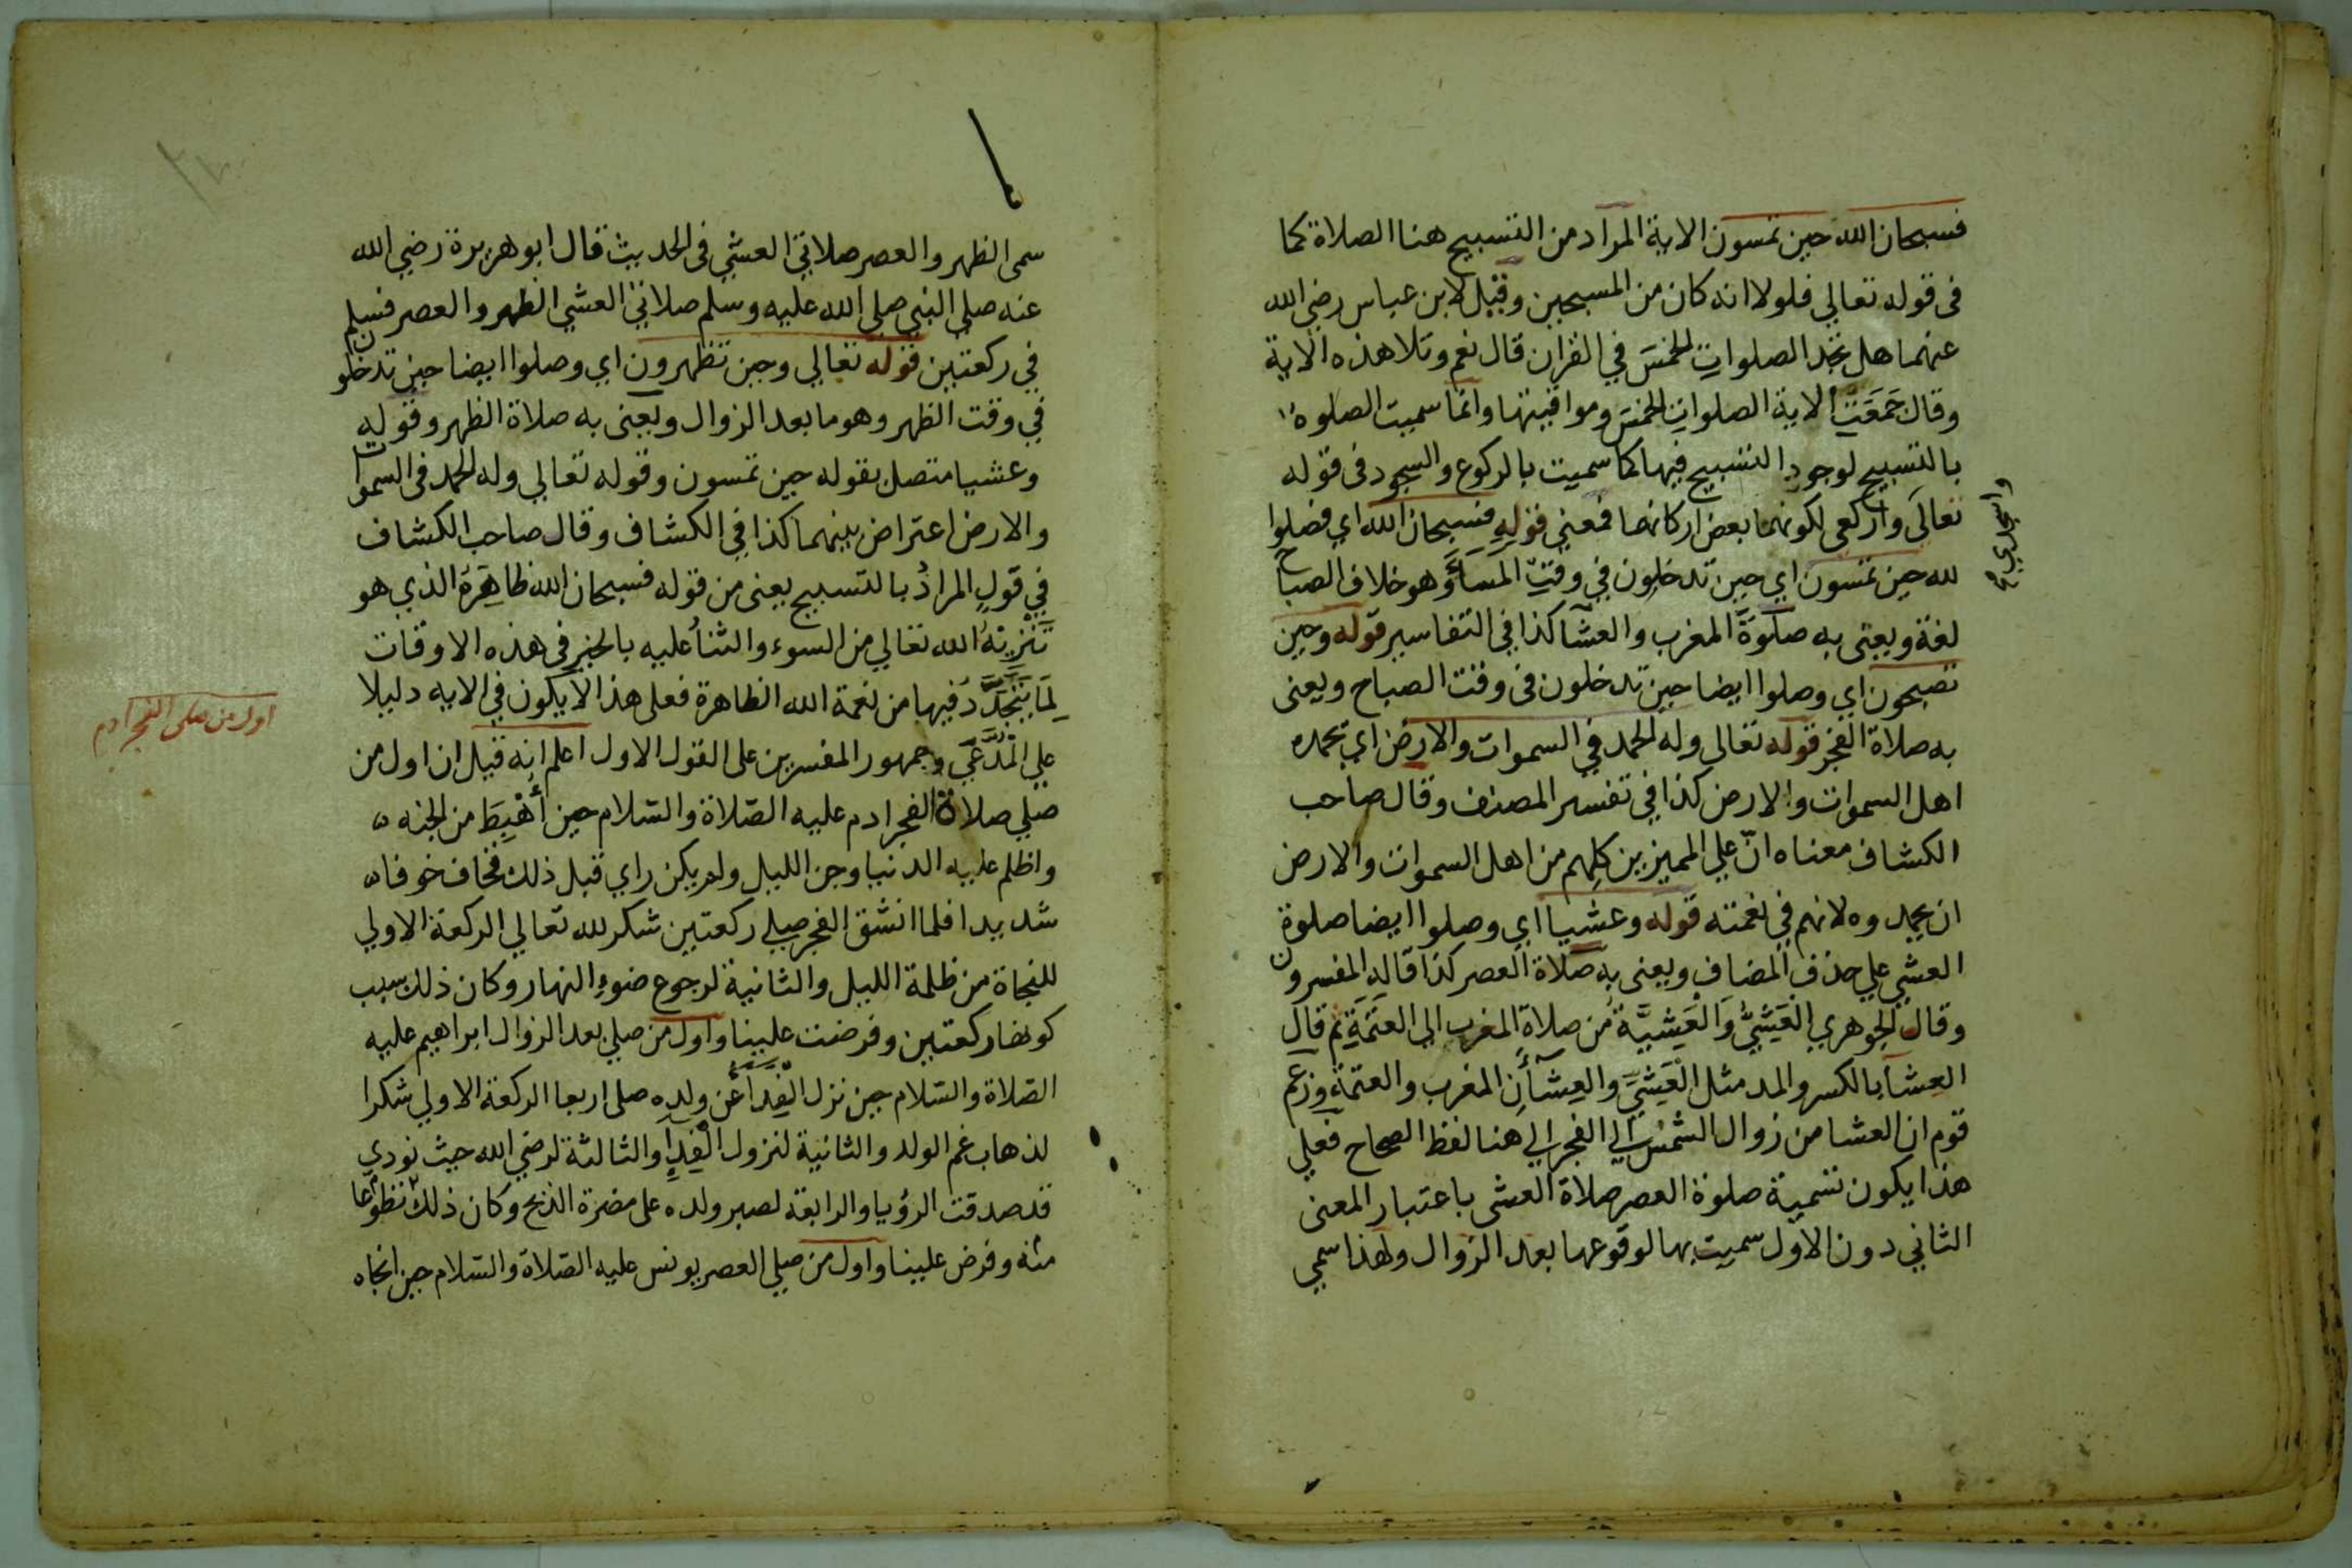 فسبحان الله حين تمسون الاية المراد من التسبيح هنا الصلاة كما
فى قوله تعالي فلولا انه كان من المسبحين وقيل لابن عباس رضى الله
عنهما هل تجد الصلوات الخمسَ في القران قال نعم وتلا هذه الاية
وقال جَمَعَتْ الاية الصلوات الخمسَ ومواقيتها وانما سميت الصلوة
بالتسبيح لوجود التسبيح فيها كما سميت بالركوع والسجود فى قوله
تعالَى واركعى لكونهما بعض اركانها فمعني قوله فسبحان الله اي فصلوا
واسجدي صح
لله حين تمسون اي حين تدخلون في وقت المَسَاءِ وهو خلاف الصباح
لغة ويعنى به صلوةَ المغرب والعشآ كذا في التفاسير قوله وحين
تصبحون اي وصلوا ايضا حين تدخلون فى وقت الصباح ويعنى
به صلاة الفجر قوله تعالى وله الحمد في السموات والارض اي يحمده
اهل السموات والارض كذا في تفسير المصنف وقال صاحب
الكشاف معناه انّ علي المميزين كلِهم من اهل السموات والارض
ان يحمدوه لانهم في نعمته قوله وعشيا اي وصلوا ايضا صلوة
العشي علي حذف المضاف ويعنى به صلاة العصر كذا قاله المفسرون
وقال الجوهري العَشِيُّ وَالْعَشِيَّةُ مُن صلاة المغرب الي العَتَمَةِ ثم قال
العِشآ بالكسر والمد مثل الْعَشِيّ والعِشآأنِ المغرب والعتمة وزعم
قوم ان العشا من زوال الشمس الي الفجر الي هنا لفظ الصحاح فعلي
هذا يكون تسمية صلوة العصر صلاة العشى باعتبار المعنى
الثاني دون الاول سميت بها لوقوعها بعد الزوال ولهذا سمي
سمى الظهر والعصر صلاتي العشي فى الحديث قال ابو هريرة رضي الله
عنه صلى النبي صلى الله عليه وسلم صلاتي العشي الظهر والعصر فسلم
في ركعتين قوله تعالي وحين تظهرون اي وصلوا ايضا حين تدخلون
في وقت الظهر وهو ما بعد الزوال ويعنى به صلاة الظهر وقوله
وعشيا متصل بقوله حين تمسون وقوله تعالي وله الحمد فى السموات
والارض اعتراض بينهما كذا في الكشاف وقال صاحب الكشاف
في قولٍ المرادُ بالتسبيح يعنى من قوله فسبحان الله ظاهِرَهُ الذي هو
تَنْزِيْهُ الله تعالي من السوء والثنأُ عليه بالخير فى هذه الاوقات
لِمَا يَتَجَدَّدُ فيها من نعمة الله الظاهرة فعلى هذا لا يكون في الايه دليلا
علي المُدَّعَي وجمهور المفسرين على القول الاول اعلم انه قيل ان اول من
اول من صلى الفجر ادم
صلي صلاة الفجر ادم عليه الصّلاة والسّلام حين أُهْبِطَ من الجنه
واظلم عليه الدنيا وجن الليل ولم يكن راي قبل ذلك فخاف خوفا
شديدا فلما انشق الفجر صلي ركعتين شكر لله تعالي الركعة الاولي
للنجاة من ظلمة الليل والثانية لرجوع ضوء النهار وكان ذلك سبب
كونها ركعتين وفرضت علينا واول من صلي بعد الزوال ابراهيم عليه
الصّلاة والسّلام حين نزل الْفِدَآءُ عن ولده صلى اربعا الركعة الاولي شكرا
لذهاب غم الولد والثانية لنزول الْفِدآءِ والثالثة لرضي الله حيث نودي
قد صدقت الرؤيا والرابعة لصبر ولده على مضرة الذبح وكان ذلك تطوّعا
منه وفرض علينا واول من صلي العصر يونس عليه الصّلاة والسّلام حين انجاه